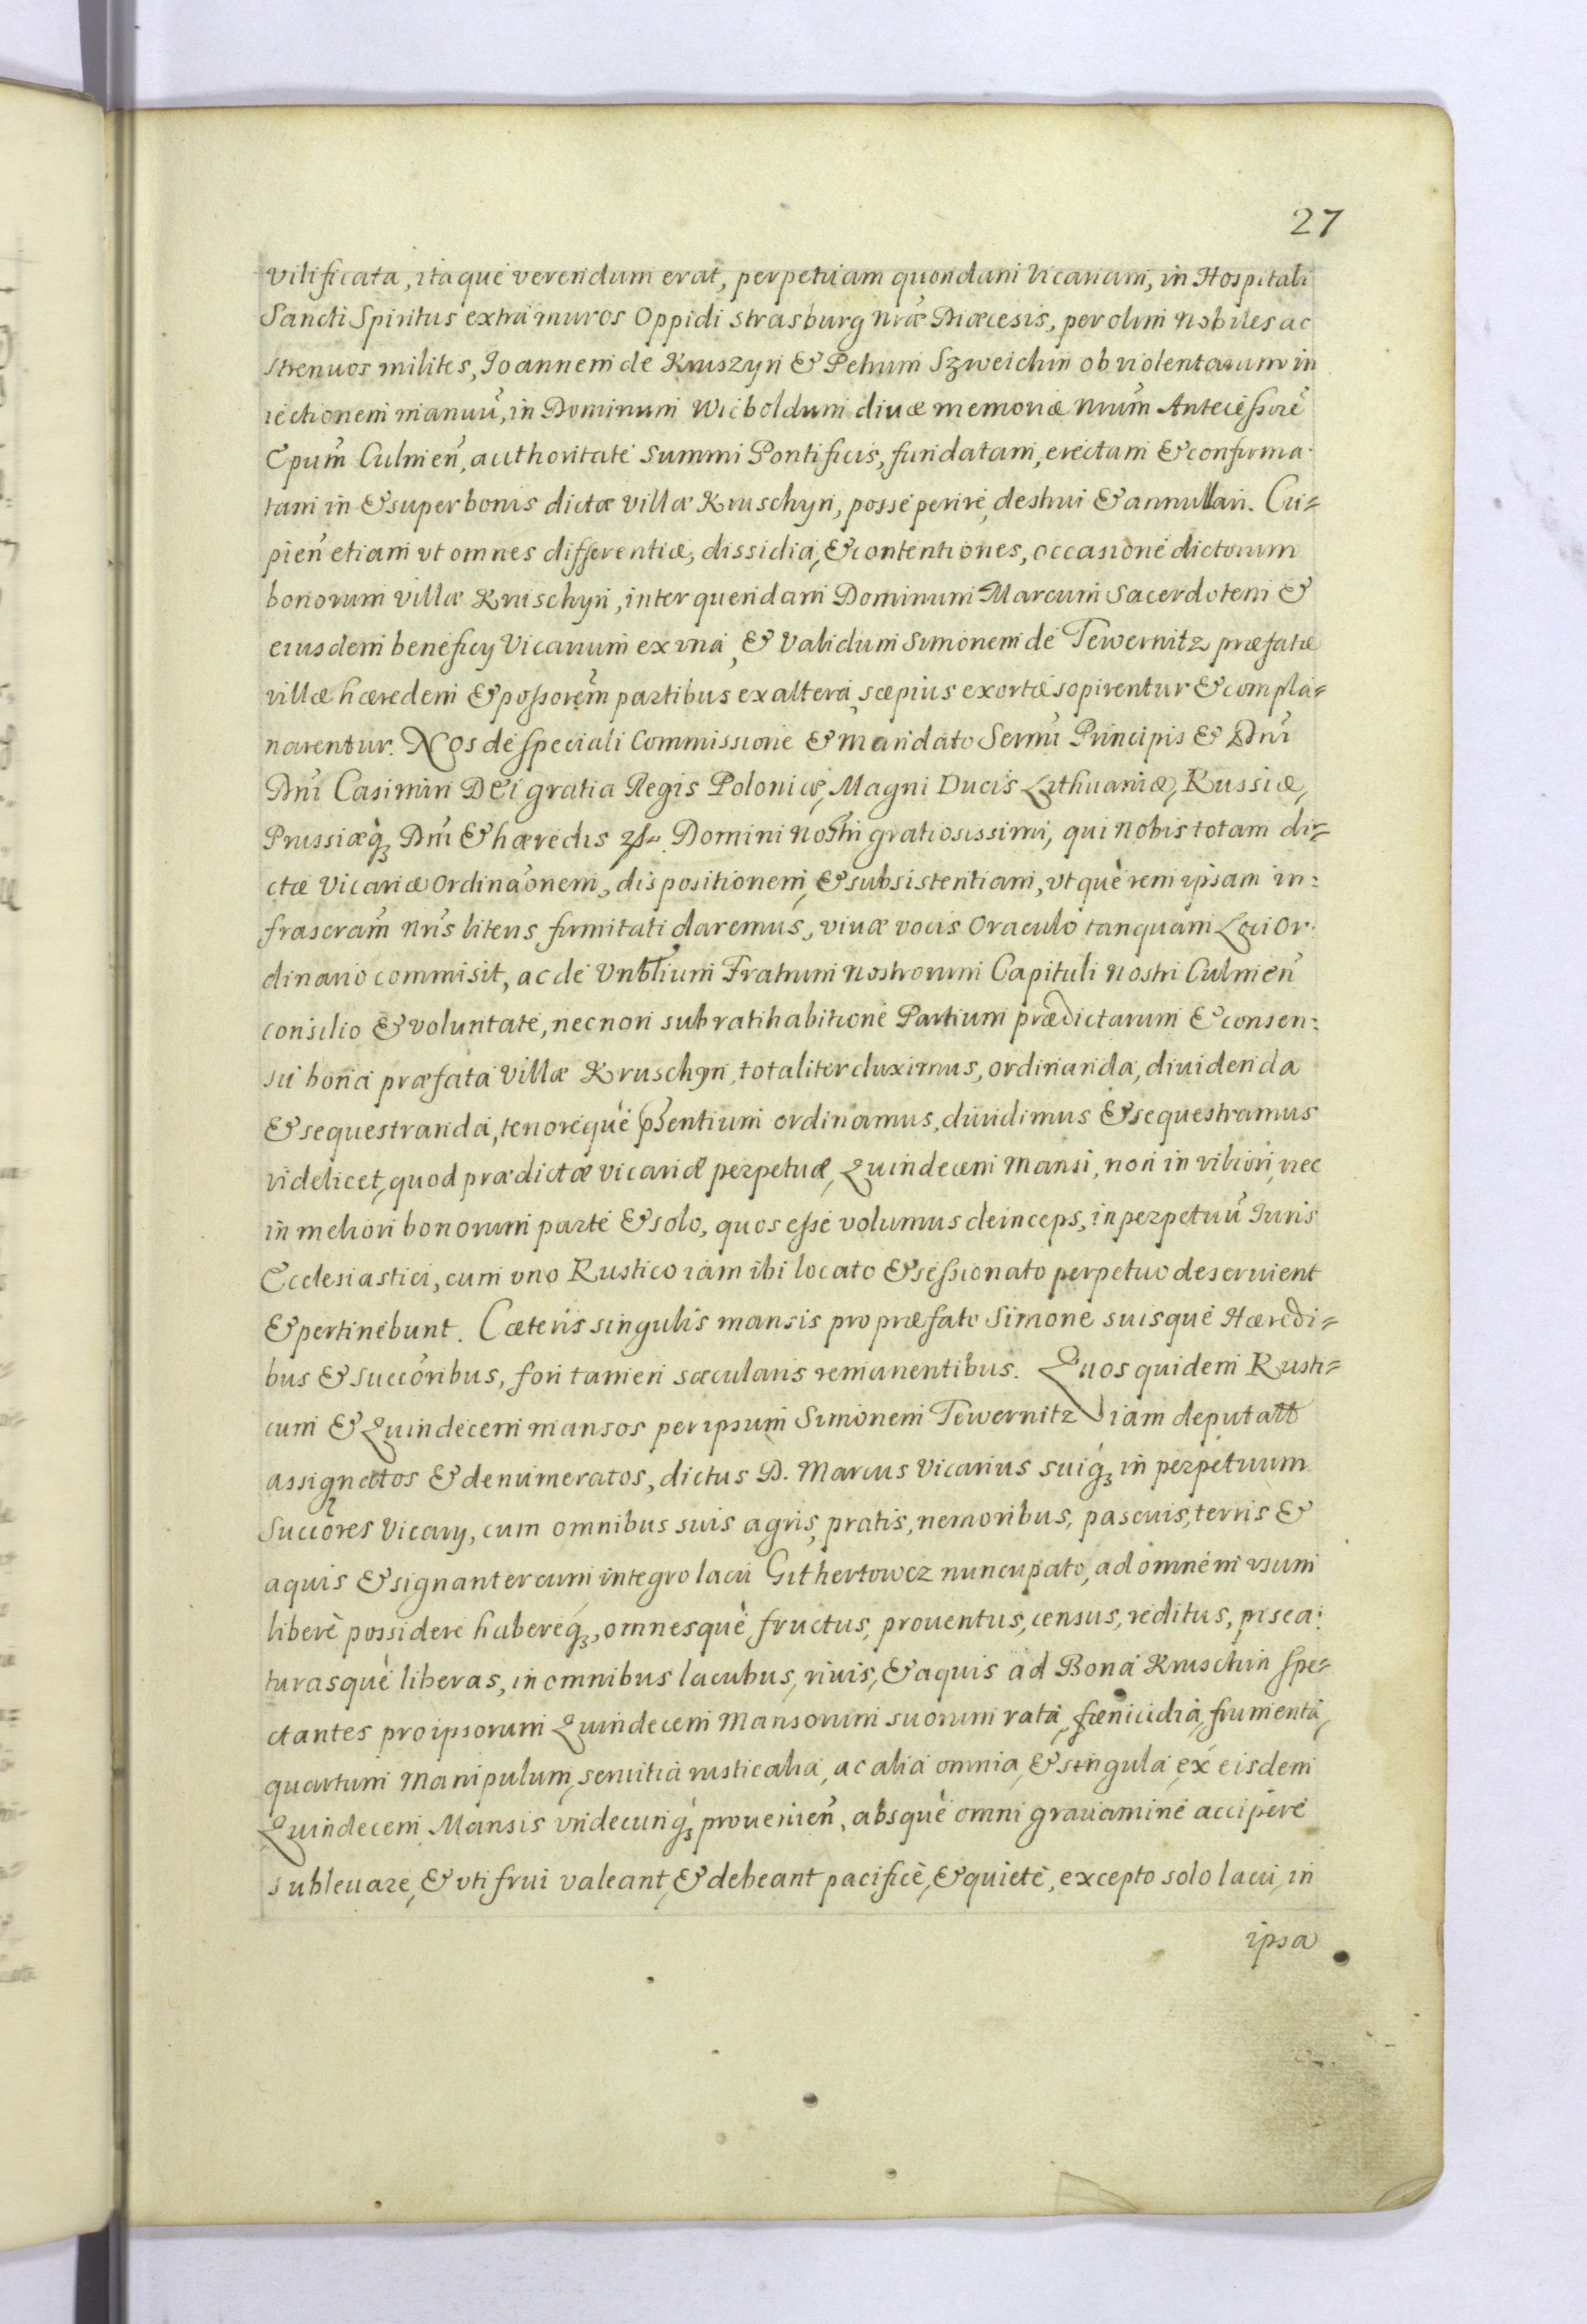 27
vilificata, itaque verendum erat, perpetuam quondam Vicariam, in Hospitali
Sancti Spiritus extra muros Oppidi Strasburg nrae Diaecesis, per olim Nobiles ac
strenuos milites, Joannem de Kruszyn & Petrum Szweichin ob violentarum in
iectionem manuū, in Dominum Wicboldum divae memoriae nrum̃ Antecessorē
Epum̃ Culmen̄, authoritate Summi Pontificis, fundatam, erectam & confirma-
tam in & super bonis dictae villae Kruschyn, posse perire, destrui & annullari. Cu=
pien̄ etiam vt omnes differentiae, dissidia, & contentiones, occasione dictorum
bonorum villae Kruschyn, inter quendam Dominum Marcum Sacerdotem &
eiusdem beneficy Vicarium ex vna, & Validum Simonem de Tewernitz praefatae
villae haeredem & possorem̃ partibus ex altera, saepius exortae sopirentur & compla=
narentur. Nos de speciali Commissione & mandato Sermi Principis & Dnī
Dnī Casimiri Dei gratia Regis Poloniae, Magni Ducis Lithuaniae, Russiae,
Prussiaeq; Dnī & haeredis etc. Domini nostri gratiosissimi, qui nobis totam di=
ctae Vicariae Ordinãonem, dispositionem, & subsistentiam, vt què rem ipsam in=
frascram̃ nris̃ literis firmitati daremus, viuae vocis Oraculo tanquam Loci Or-
dinario commisit, ac de Vnbĩlium Fratrum nostrorum Capituli nostri Culmen̄
consilio & voluntate, necnon sub ratihabitione Partium praedictarum & consen=
su bona praefata Villae Kruschyn, totaliter duximus, ordinanda, diuidenda
& sequestranda, tenorequè pñsentium ordinamus, diuidimus & sequestramus
videlicet, quod praedictae vicariae perpetuae, Quindecem mansi, non in viliori, nec
in meliori bonorum parte & solo, quos esse volumus deinceps, in perpetuū Iuris
Ecclesiastici, cum vno Rustico iam ibi locato & sessionato perpetuo deseruient
& pertinebunt. Caeteris singulis mansis pro praefato Simone suisque Haeredi=
bus & succõribus, fori tamen saecularis remanentibus. Quos quidem Rusti=
cum & Quindecem mansos per ipsum Simonem Tewernitz iam deputatt
assignatos & denumeratos, dictus D. Marcus Vicarius suiq; in perpetuum
Succores Vicary, cum omnibus suis agris, pratis, nemoribus, pascuis, terris &
aquis & signanter cum integro lacu Githertowcz nuncupato, ad omnem vsum
liberè possidere habereq;, omnesquè fructus, prouentus, census, reditus, pisca=
turasquè liberas, in omnibus lacubus, riuis, & aquis ad Bona Kruschin spe=
ctantes pro ipsorum Quindecem Mansorum suorum rata, faenicidia, frumenta,
quartum Manipulum, seruitia rusticalia, ac alia omnia, & singula, ex eisdem
Quindecem Mansis vndecunq; prouenien̄, absquè omni grauamine accipere
subleuare, & vti frui valeant, & debeant pacificè, & quietè, excepto solo lacu, in
ipsa